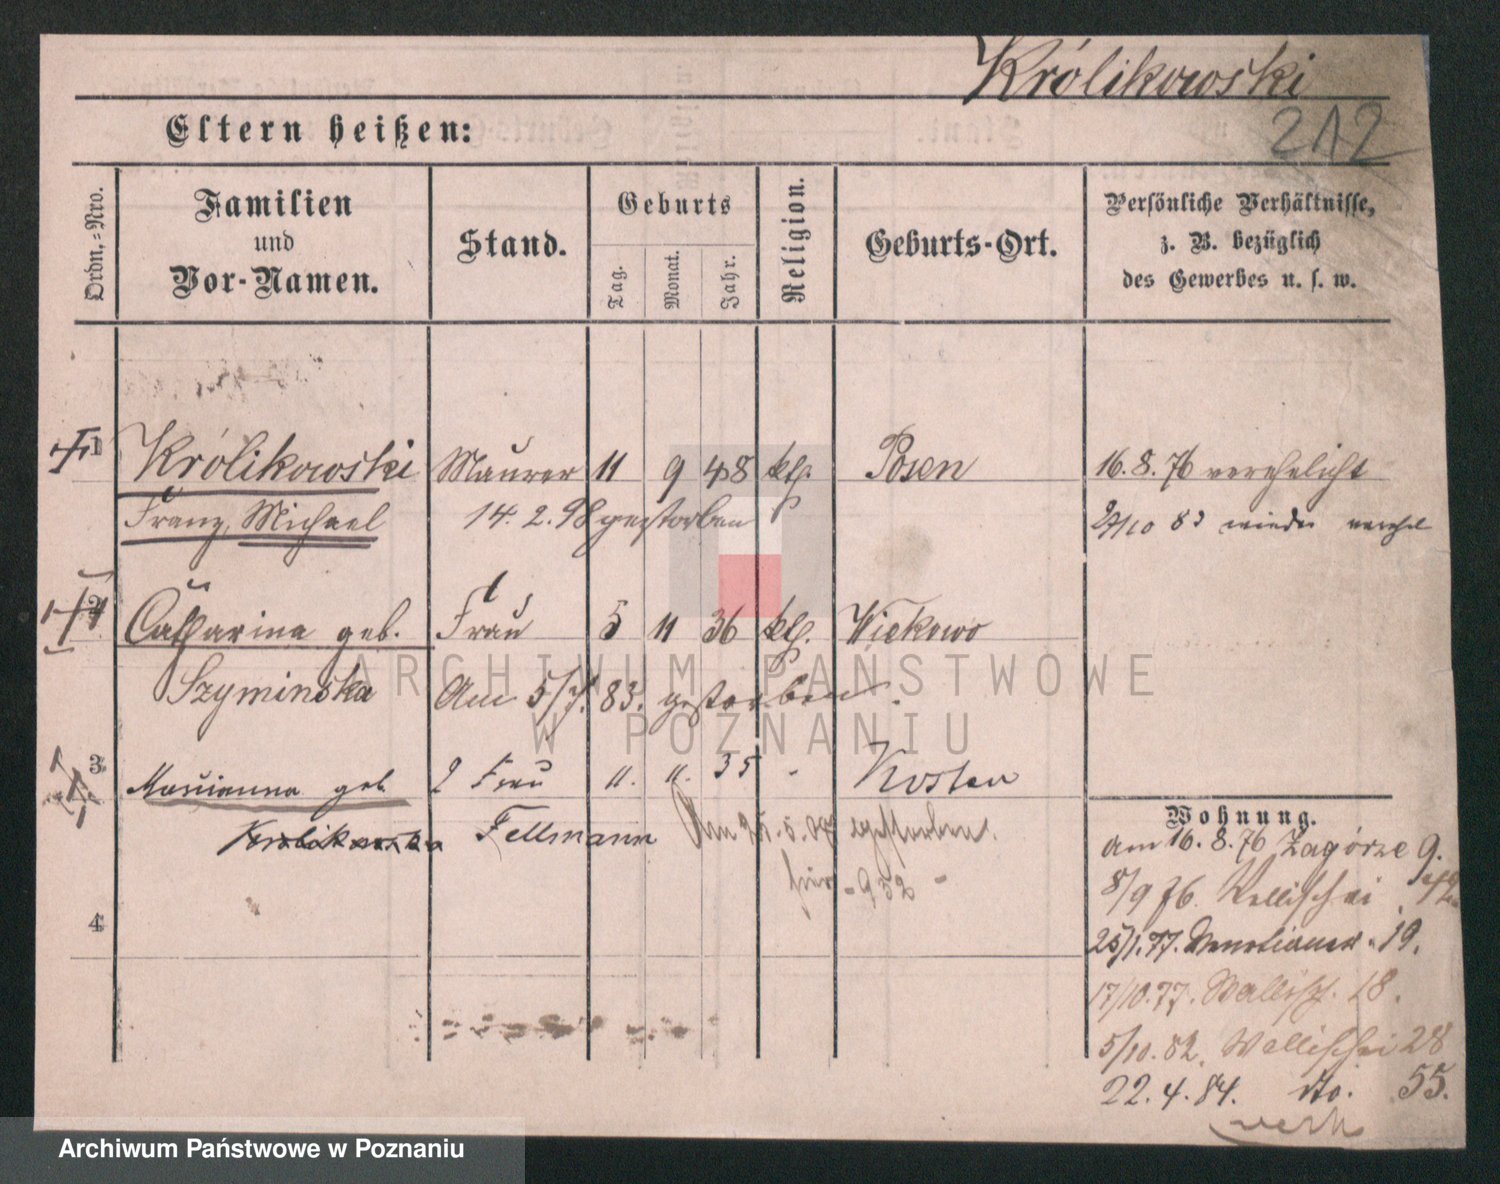 Królikowski
212
Eltern heißen:
Ordn.-Nro.
Familien
und
Vor-Namen.
Stand.
Geburts
Tag.
Monat.
Jahr.
Religion.
Geburts-Ort.
Persönliche Verhältnisse,
z. B. bezüglich
des Gewerbes u. s. w.
1 Królikowski Maurer 11 9 48 kth. Posen 16. 8. 76 verehelicht
Franz, Michael 14. 2. 98 gestorben 83 wieder verehel
2 Catharina geb. Frau 5 11 36 kth. Wiekowo
Szyminska Am 5/7. 83. gestorben.
3 Marianna geb. 2 Frau 35 Kosten
Fellmann Am gestorben.
952
4
Wohnung.
am 16. 8. 76 Zagórze 9.
8/9 76. Wallischei
25/1. 77. Venetianer 19.
17/10. 77. Wallisch. 18.
5/10. 82. Wallischei 28
22. 4. 84. dto. 55.
ARCHIWUM PAŃSTWOWE
W POZNANIU
Archiwum Państwowe w Poznaniu